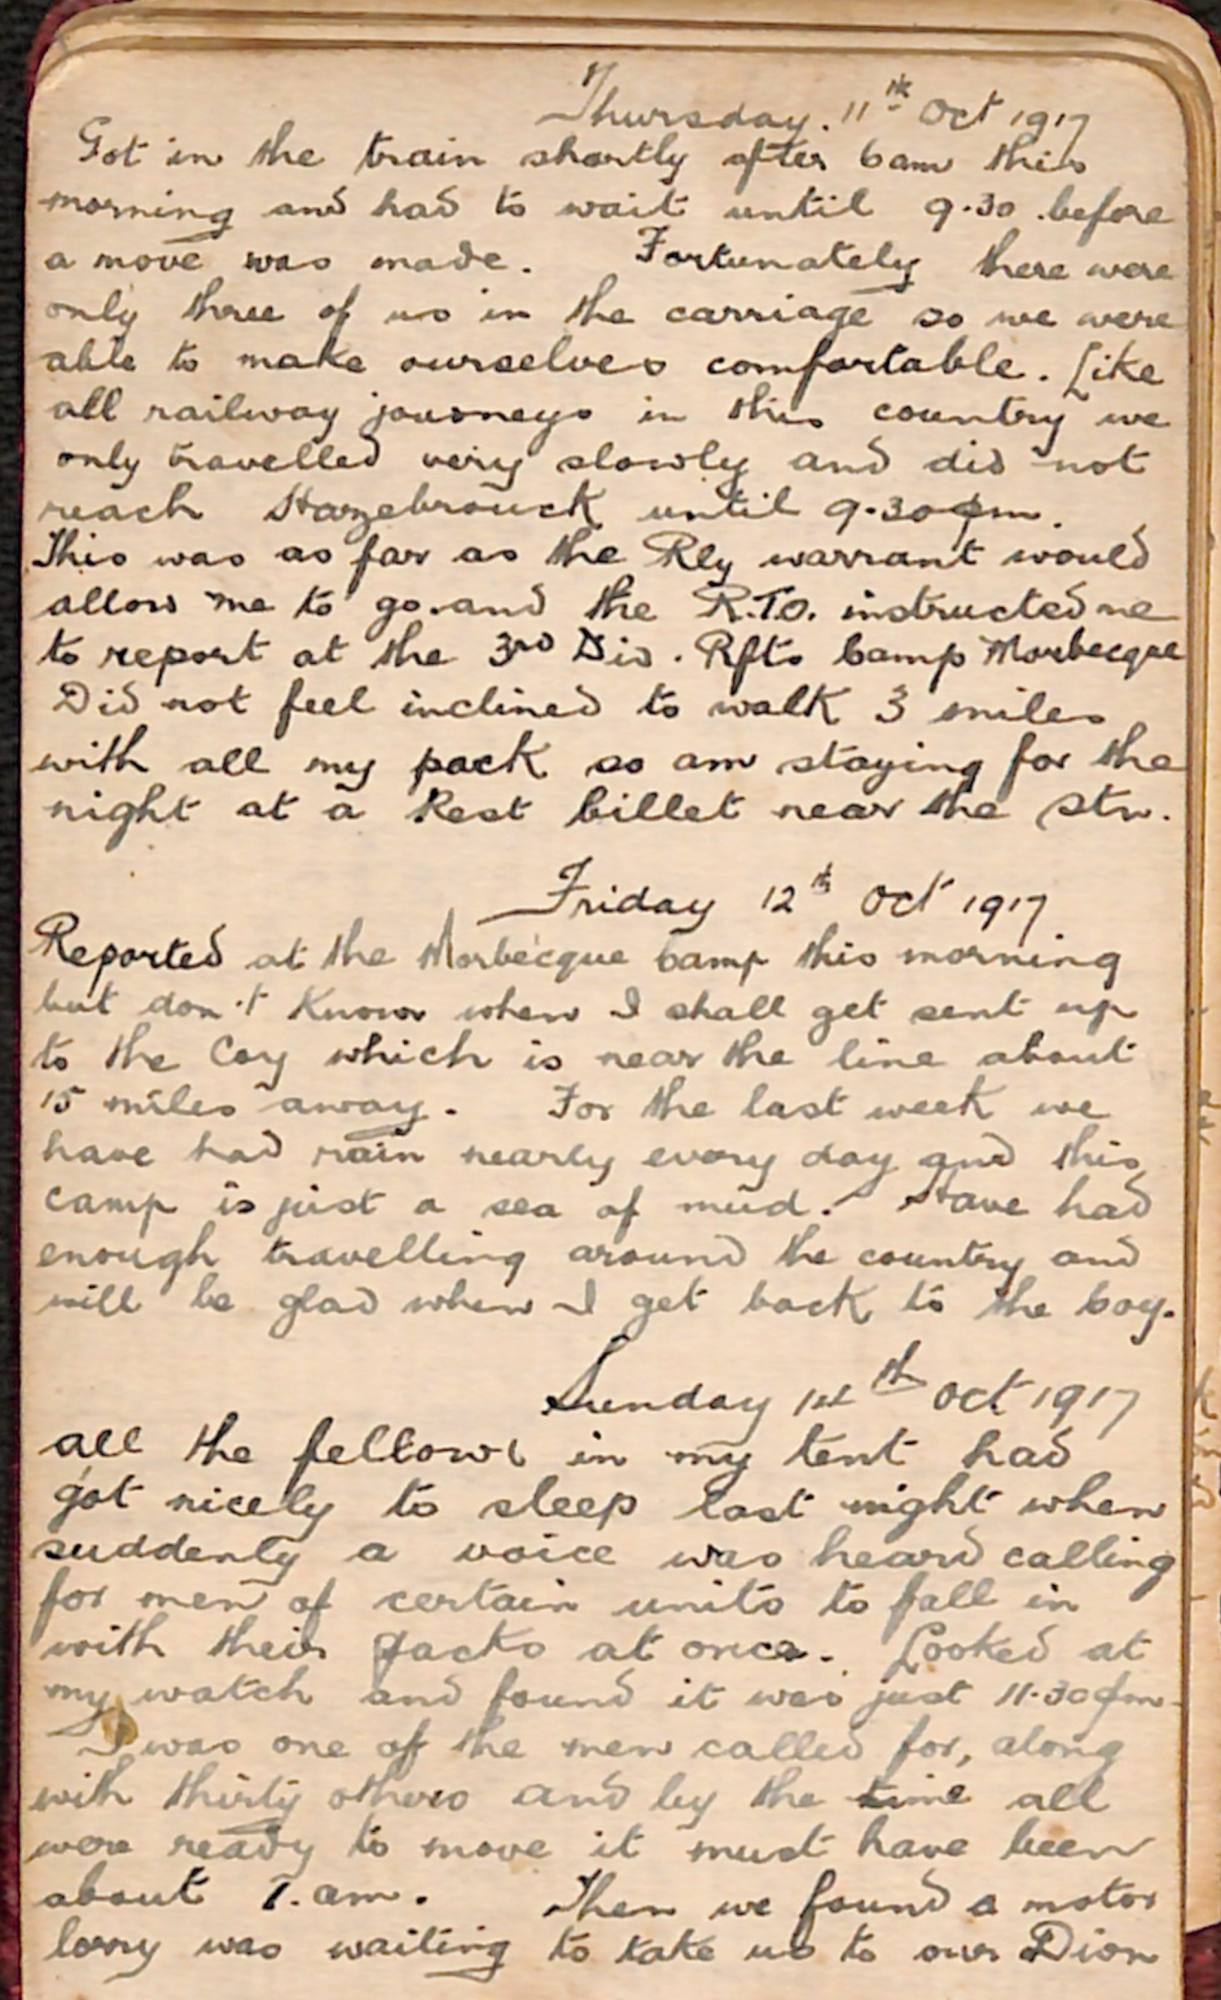 Thursday. 11th Oct 1917
Got in the train shortly after 6am this
morning and had to wait until 9.30 before
a move was made. Fortunately there were
only three of us in the carriage so we were
able to make ourselves comfortable. Like
all railway journeys in this country we
only travelled very slowly and did not
reach Hazebrouck until 9.30pm.
This was as far as the Rly warrant would
allow me to go and the R.T.O. instructed me
to report at the 3rd Div. Rfts Camp Morbecque
Did not feel inclined to walk 3 miles
with all my pack so am staying for the
night at a Rest billet near the Stn.
Friday 12th Oct 1917
Reported at the Morbecque Camp this morning
but don't know when I shall get sent up
to the Coy which is near the line about
15 miles away. For the last week we
have had rain nearly every day and this
camp is just a sea of mud. Have had
enough travelling around the country and
will be glad when I get back to the Coy.
Sunday 14th Oct 1917
All the fellows in my tent had
got nicely to sleep last night when
suddenly a voice was heard calling
for men of certain units to fall in
with their packs at once. Looked at
my watch and found it was just 11.30pm
I was one of the men called for, along
with thirty others and by the time all
were ready to move it must have been
about 1.am. Then we found a motor
lorry was waiting to take us to our Dion